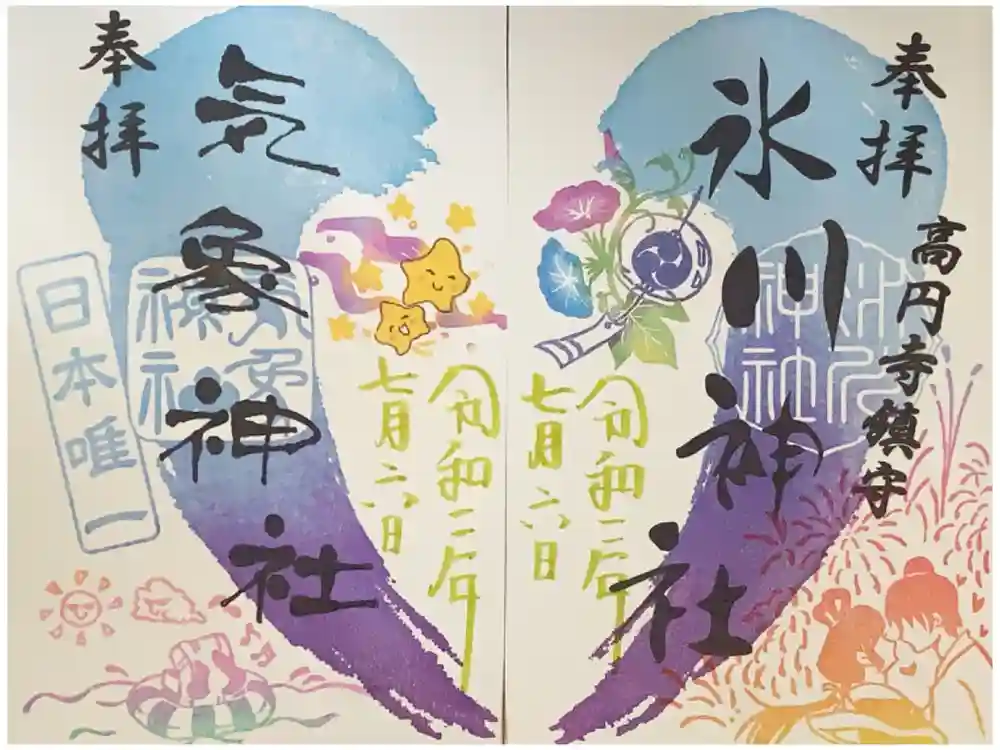 奉拝
高円寺鎮守
氷川神社
氷川
神社
令和二年
七月六日
奉拝
気象神社
気象
神社
日本唯一
令和二年
七月六日